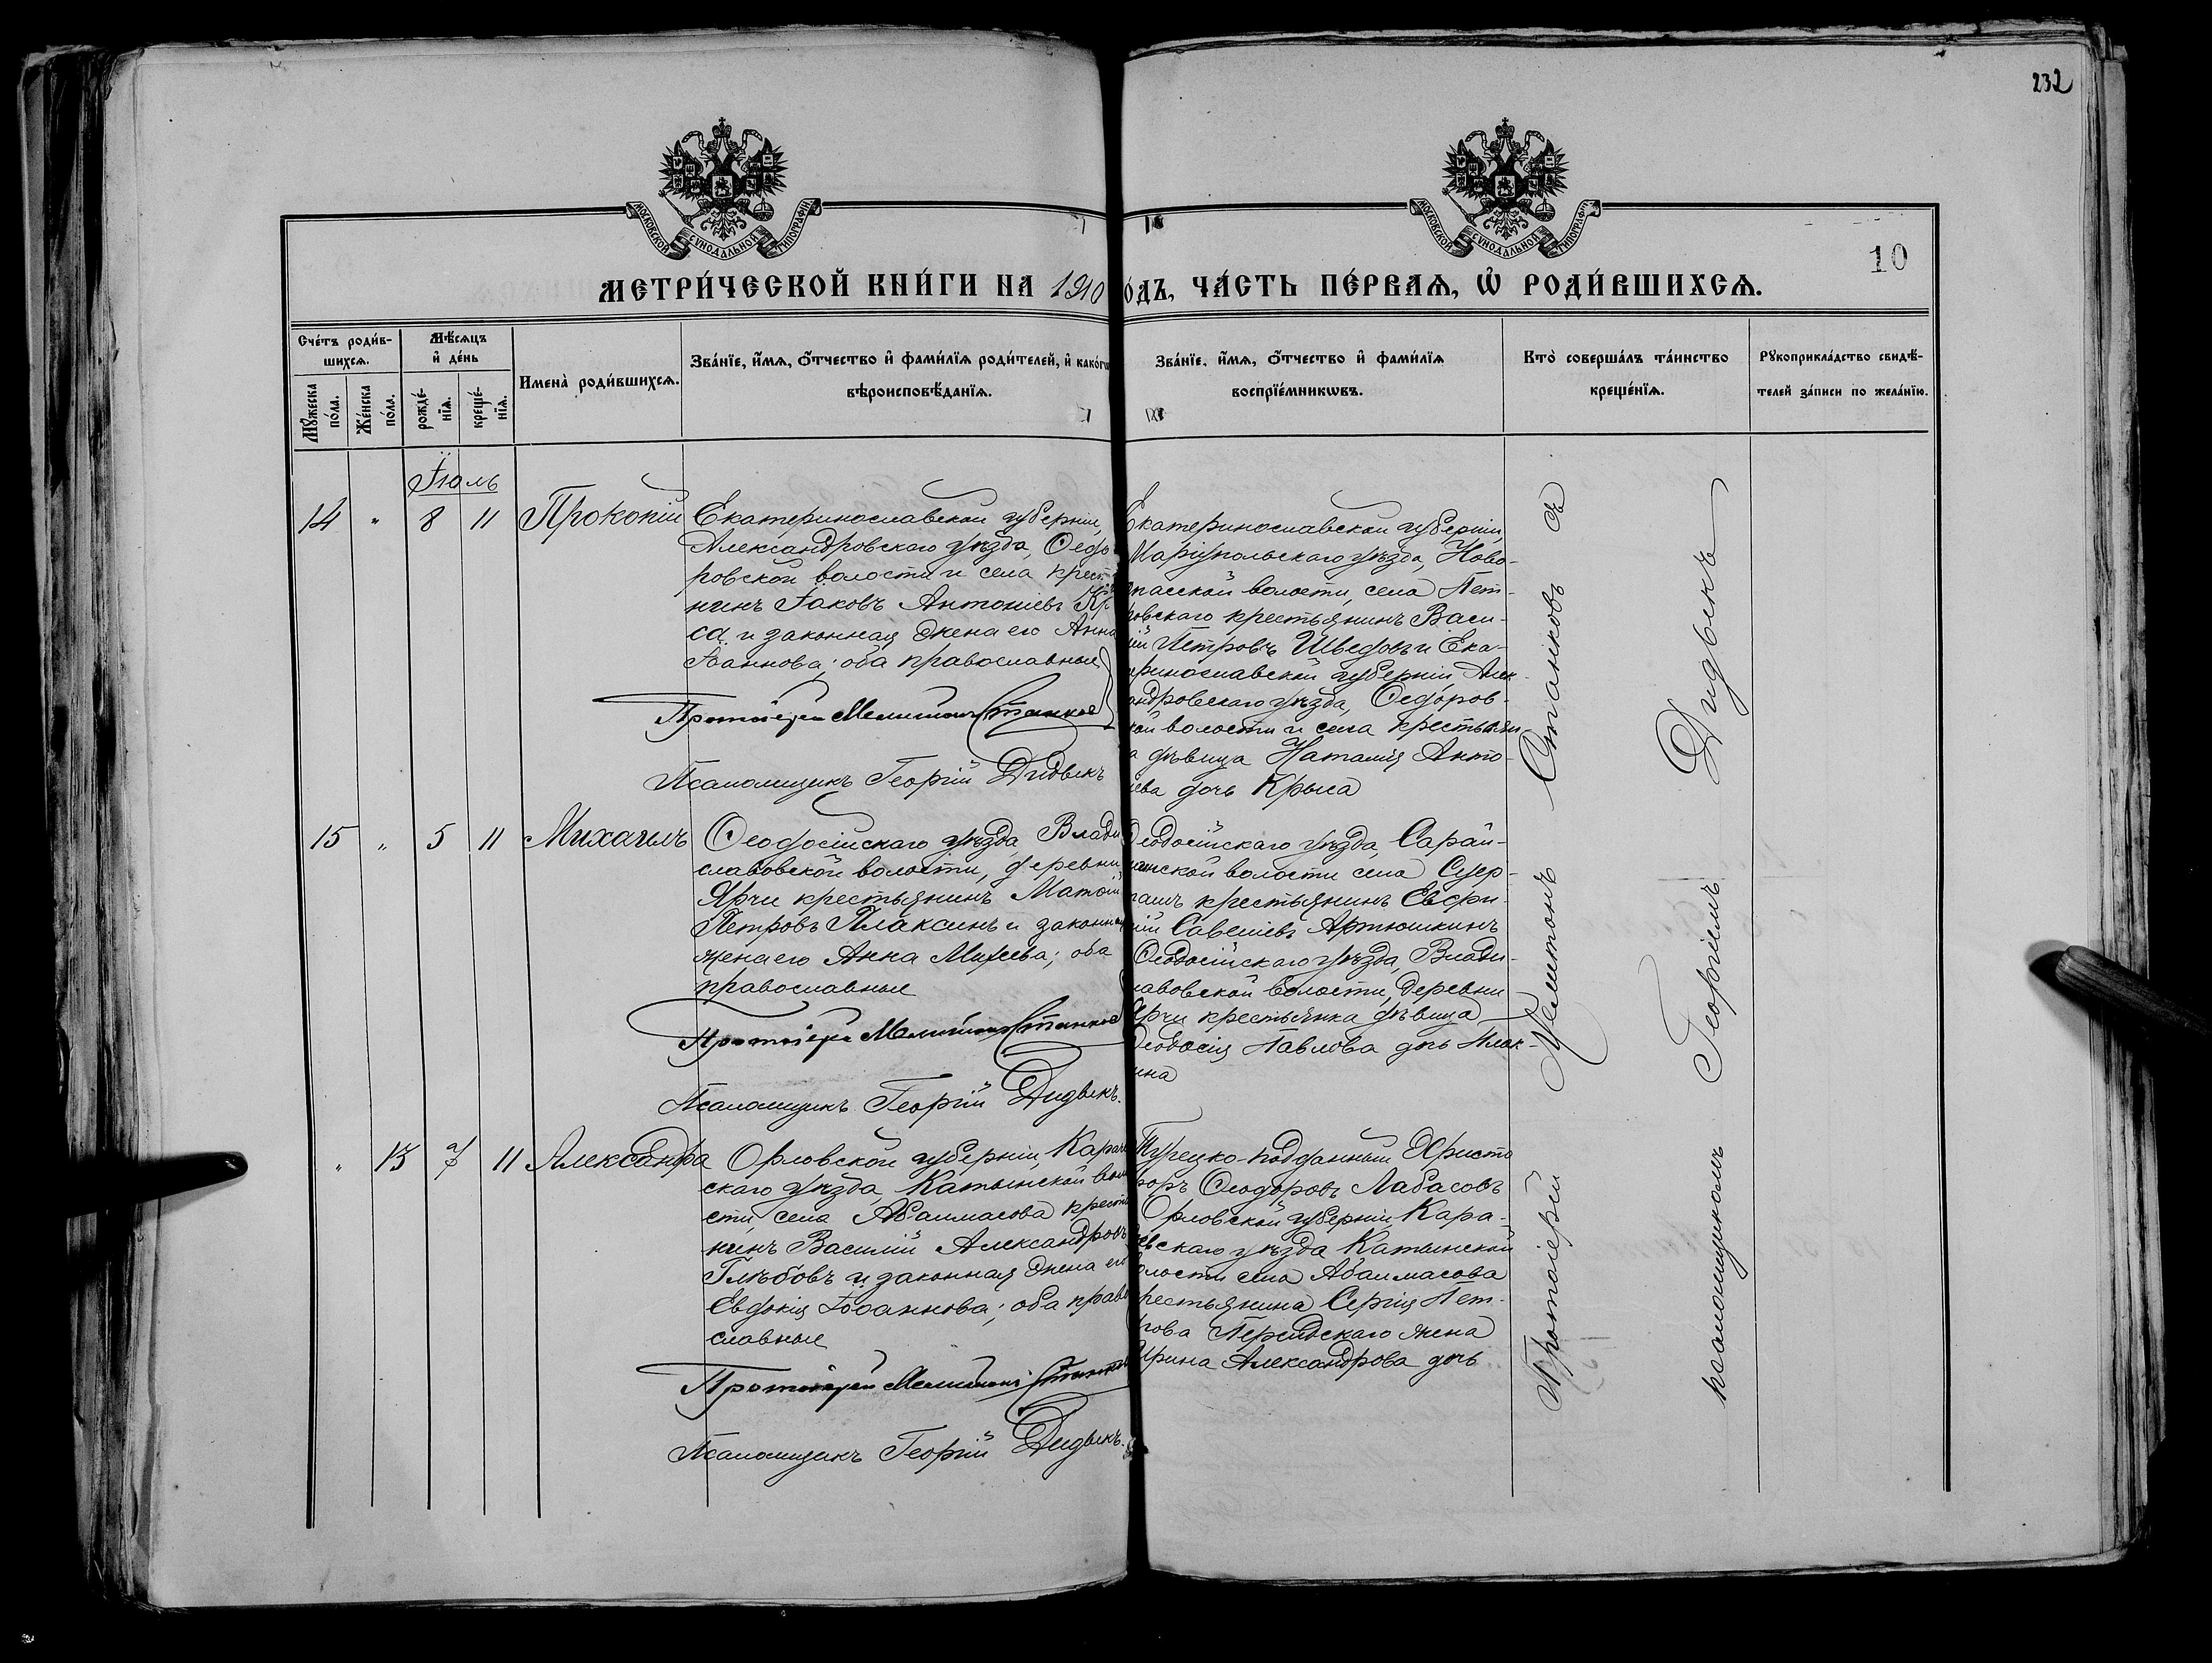 232
МОСКОВСКОЙ СѴНОДАЛЬНОЙ ТИПОГРАФІИ
МОСКОВСКОЙ СѴНОДАЛЬНОЙ ТИПОГРАФІИ
10
МЕТРИ́ЧЕСКОЙ КНИ́ГИ НА 1910
о́дъ, ЧА́СТЬ ПЕ́РВАѦ, Ѽ РОДИ́ВШИХСѦ.
Сче́тъ роди́в-
шихсѧ.
Мѣ́сѧцъ
и҆ де́нь
Мꙋ́жеска
по́ла.
Же́нска
по́ла.
рожде́-
нїѧ.
креще́-
нїѧ.
И҆мена̀ роди́вшихсѧ.
Зва́нїе, и҆́мѧ, ѻ҆́тчество и҆ фами́лїѧ роди́телей, и҆ како́гѡ
вѣроисповѣ́данїѧ.
Зва́нїе, и҆́мѧ, ѻ҆́тчество и҆ фами́лїѧ
воспрїе́мникѡвъ.
Кто̀ соверша́лъ та́инство
креще́нїѧ.
Рꙋкоприкла́дство свидѣ́-
телей за́писи по жела́нїю.
Іюль
14 " 8 11 Прокопій
Екатеринославской губерніи,
Александровскаго уѣзда, Ѳедо
ровской волости и села крест
нинъ Іаковъ Антоніевъ Кры
са и законная жена его Анна
Іоаннова; оба православные
Протоіерей Мелитонъ Станков
Псаломщикъ Георгій Дидыкъ
Екатеринославской губерніи,
Маріупольскаго уѣзда, Ново-
спасской волости, села Пет-
ровскаго крестьянинъ Васи-
ій Петровъ Шведовъ и Ека-
ринославской губерніи, Алек-
андровскаго уѣзда, Ѳедоров-
кой волости и села крестьян
а дѣвица Наталія Анто-
іева дочь Крыса
15 " 5 11 Михаилъ
Ѳеодосійскаго уѣзда, Влади
славовской волости, деревни
Ярчи крестьянинъ Матѳій
Петровъ Плаксинъ и законная
жена его Анна Михеева; оба
православные
Протоіерей Мелитонъ Станков
Псаломщикъ Георгій Дидыкъ.
Ѳеодосійскаго уѣзда, Сарай-
минской волости села
крестьянинъ Евфи-
мій Савеліевъ Артюшкинъ
Ѳеодосійскаго уѣзда, Влади-
лавовской волости, деревни
Ярчи крестьянка дѣвица
Ѳеодосія Павлова дочь Плак-
сина
" 13 7 11 Александра
Орловской губерніи, Караче
скаго уѣзда, Катынской воло
сти, села Абалмасова крестья
нинъ Василій Александровъ
Глѣбовъ и законная жена его
Евдокія Іоаннова; оба право
славные
Протоіерей Мелитонъ Станков
Псаломщикъ Георгій Дидыкъ.
Турецко-подданный Христо
форъ Ѳеодоровъ Лабасовъ
Орловской губерніи, Кара-
евскаго уѣзда Катынской
волости села Абалмасова
крестьянина Сергія Пет-
рова жена
Ирина Александрова дочь
Протоіерей Мелитонъ Станковъ съ
псаломщикомъ Георгіемъ Дидыкъ